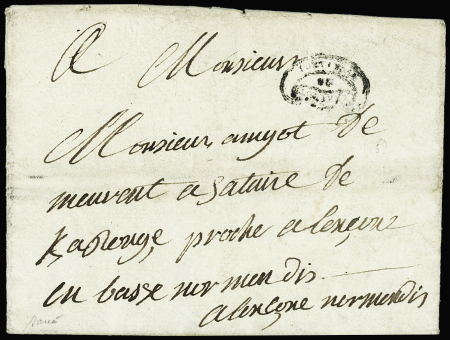 A Monsieur
Monsieur amyot de
meurent a Sataire de
proche alençone
en basse normendis
alençone normendis